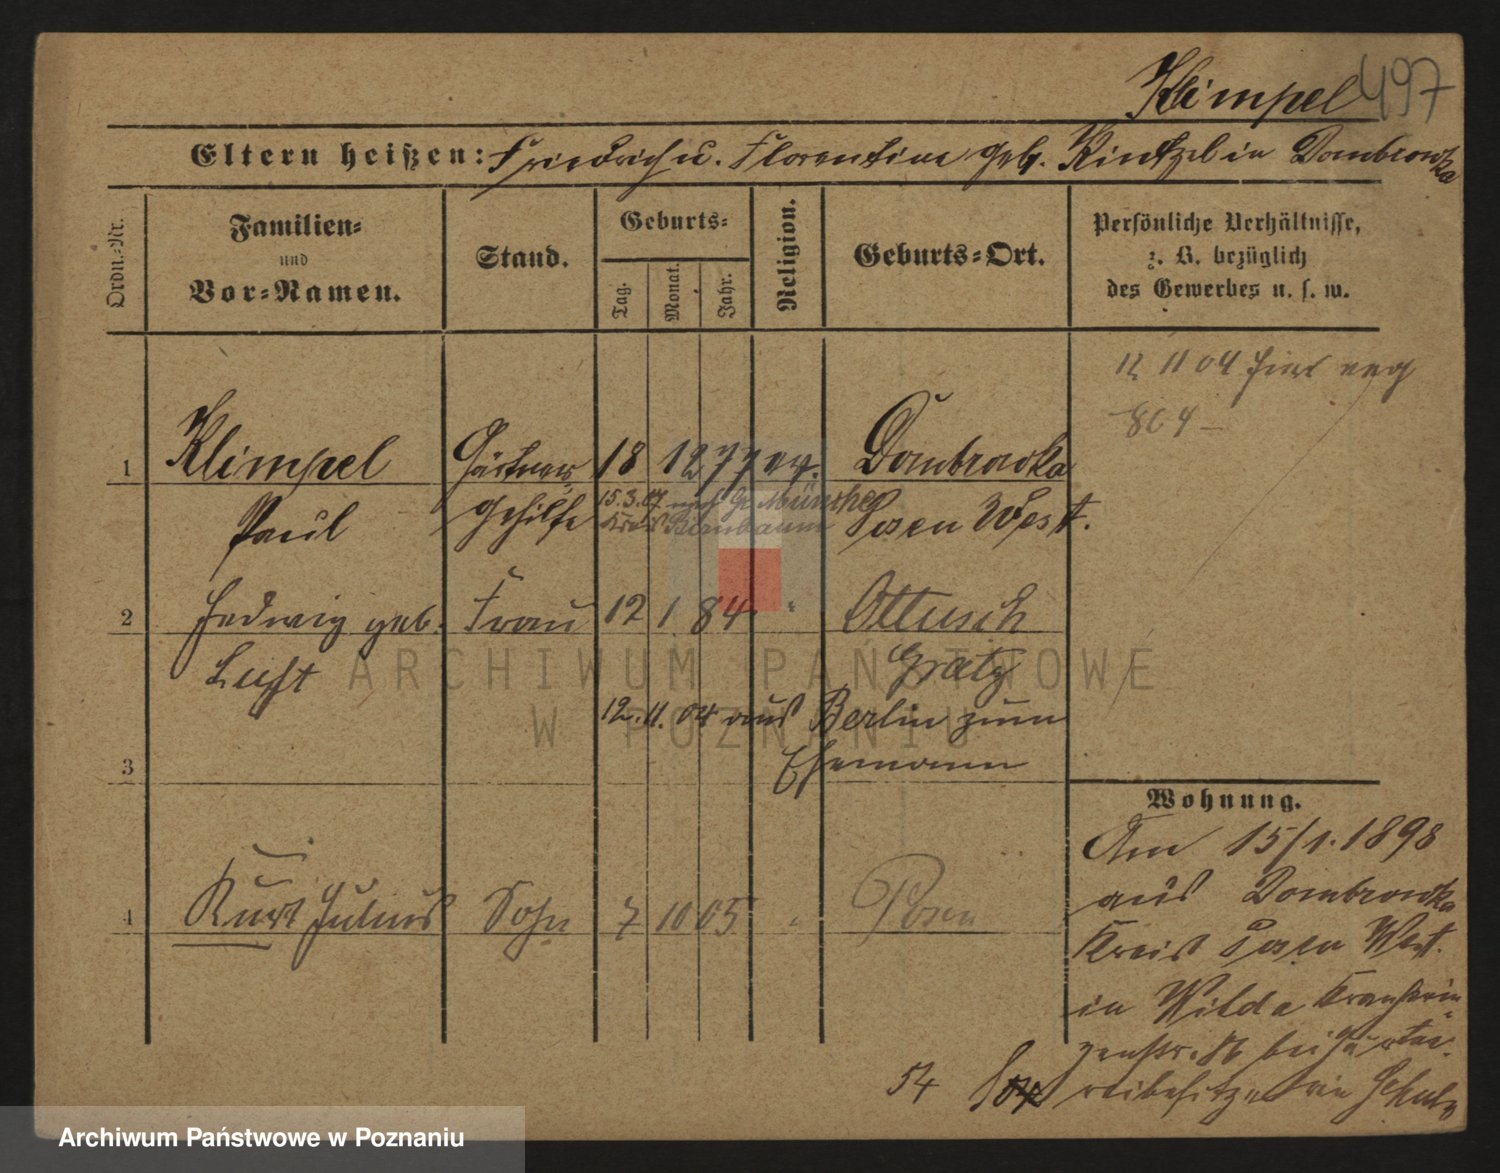 Klimpel 497
Eltern heißen: Friedrich u. Florentine geb. Kintzel in Dombrowka
Ordn.-Nr.
Familien-
und
Vor-Namen.
Stand.
Geburts-
Tag.
Monat.
Jahr.
Religion.
Geburts-Ort.
Persönliche Verhältnisse,
z. B. bezüglich
des Gewerbes u. s. w.
12 11 04 hier
804 –
1 Klimpel Gärtner 18 12 77 ev. Dombrowka
Paul gehilfe Posen West.
15.3.07 nach Gr Münche
Kreis Birnbaum
2 Hedwig geb. Frau 12 1 84 " Ottusch
Luft Grätz
12. 11. 04 aus Berlin zum
Ehemann
3
4 Kurt Julius Sohn 7 10 05 " Posen
Wohnung.
Am 15/1. 1898
aus Dombrowka
Kreis Posen West.
in Wilda
bei Gärtne-
reibesitzer
54
ARCHIWUM PAŃSTWOWE
W POZNANIU
Archiwum Państwowe w Poznaniu